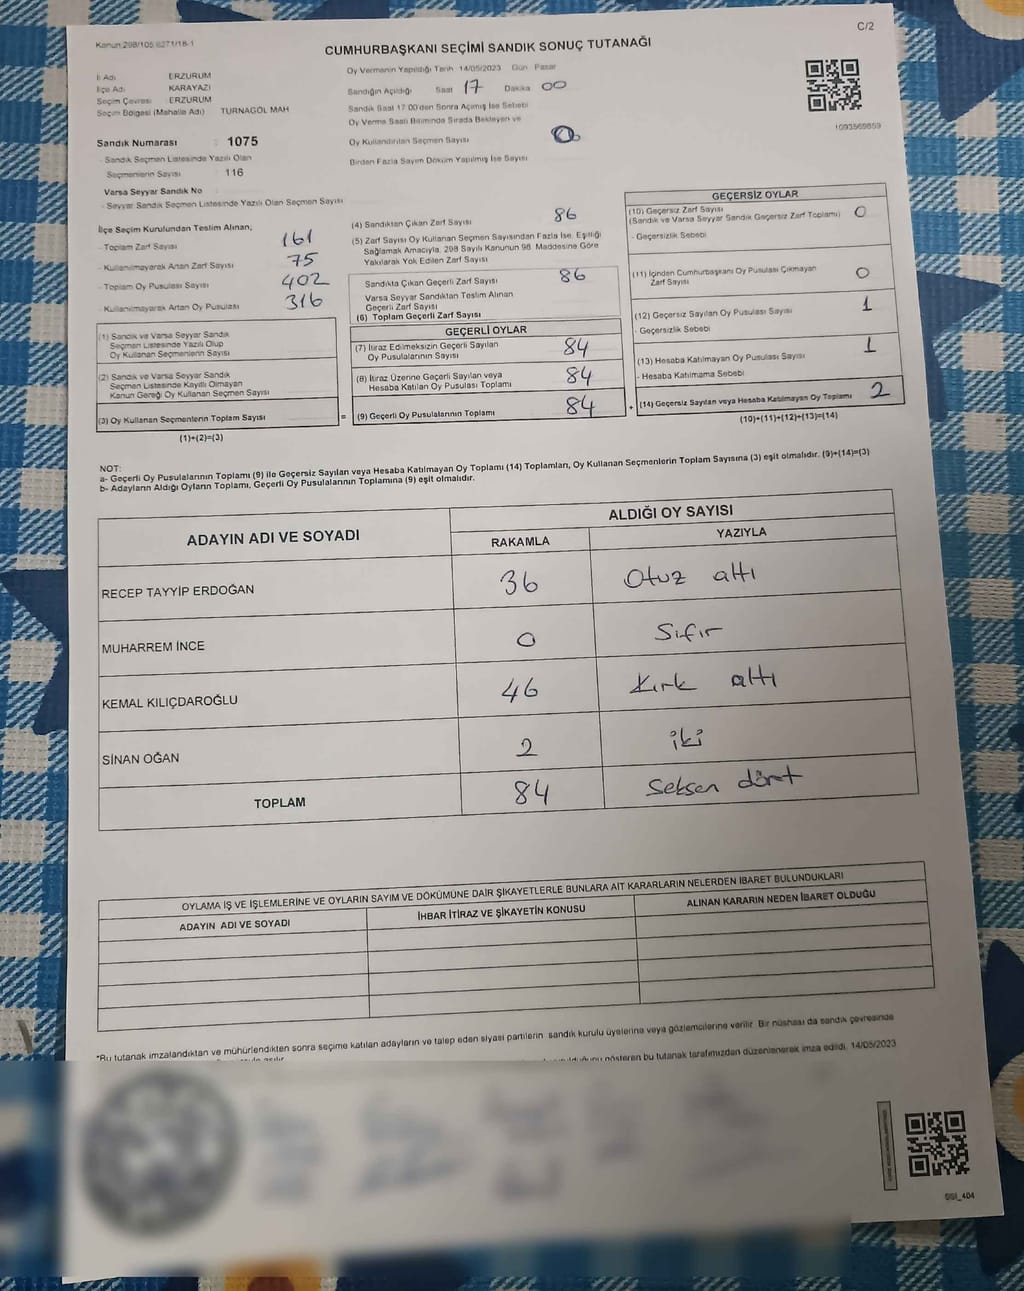 C/2
Kanun:298/105,6271/18-1
CUMHURBAŞKANI SEÇİMİ SANDIK SONUÇ TUTANAĞI
İl Adı ERZURUM
İlçe Adı KARAYAZI
Seçim Çevresi ERZURUM
Seçim Bölgesi (Mahalle Adı) TURNAGÖL MAH
Sandık Numarası : 1075
- Sandık Seçmen Listesinde Yazılı Olan
Seçmenlerin Sayısı : 116
Varsa Seyyar Sandık No
- Seyyar Sandık Seçmen Listesinde Yazılı Olan Seçmen Sayısı
Oy Vermenin Yapıldığı Tarih 14/05/2023 Gün Pazar
Sandığın Açıldığı Saat 17 Dakika 00
Sandık Saat 17.00'den Sonra Açılmış İse Sebebi
Oy Verme Saati Bitiminde Sırada Bekleyen ve
Oy Kullandırılan Seçmen Sayısı 0
Birden Fazla Sayım Döküm Yapılmış İse Sayısı
1093569859
İlçe Seçim Kurulundan Teslim Alınan;
- Toplam Zarf Sayısı 161
- Kullanılmayarak Artan Zarf Sayısı 75
- Toplam Oy Pusulası Sayısı 402
- Kullanılmayarak Artan Oy Pusulası 316
(1) Sandık ve Varsa Seyyar Sandık
Seçmen Listesinde Yazılı Olup
Oy Kullanan Seçmenlerin Sayısı
(2) Sandık ve Varsa Seyyar Sandık
Seçmen Listesinde Kayıtlı Olmayan
Kanun Gereği Oy Kullanan Seçmen Sayısı
(3) Oy Kullanan Seçmenlerin Toplam Sayısı =
(1)+(2)=(3)
(4) Sandıktan Çıkan Zarf Sayısı 86
(5) Zarf Sayısı Oy Kullanan Seçmen Sayısından Fazla İse, Eşitliği
Sağlamak Amacıyla, 298 Sayılı Kanunun 98. Maddesine Göre
Yakılarak Yok Edilen Zarf Sayısı
Sandıkta Çıkan Geçerli Zarf Sayısı 86
Varsa Seyyar Sandıktan Teslim Alınan
Geçerli Zarf Sayısı
(6) Toplam Geçerli Zarf Sayısı
GEÇERLİ OYLAR
(7) İtiraz Edilmeksizin Geçerli Sayılan
Oy Pusulalarının Sayısı 84
(8) İtiraz Üzerine Geçerli Sayılan veya
Hesaba Katılan Oy Pusulası Toplamı 84
(9) Geçerli Oy Pusulalarının Toplamı 84 +
GEÇERSİZ OYLAR
(10) Geçersiz Zarf Sayısı
(Sandık ve Varsa Seyyar Sandık Geçersiz Zarf Toplamı) 0
- Geçersizlik Sebebi
(11) İçinden Cumhurbaşkanı Oy Pusulası Çıkmayan
Zarf Sayısı 0
(12) Geçersiz Sayılan Oy Pusulası Sayısı 1
- Geçersizlik Sebebi
(13) Hesaba Katılmayan Oy Pusulası Sayısı 1
- Hesaba Katılmama Sebebi
(14) Geçersiz Sayılan veya Hesaba Katılmayan Oy Toplamı 2
(10)+(11)+(12)+(13)=(14)
NOT:
a- Geçerli Oy Pusulalarının Toplamı (9) ile Geçersiz Sayılan veya Hesaba Katılmayan Oy Toplamı (14) Toplamları, Oy Kullanan Seçmenlerin Toplam Sayısına (3) eşit olmalıdır. (9)+(14)=(3)
b- Adayların Aldığı Oyların Toplamı, Geçerli Oy Pusulalarının Toplamına (9) eşit olmalıdır.
ADAYIN ADI VE SOYADI ALDIĞI OY SAYISI
RAKAMLA YAZIYLA
RECEP TAYYİP ERDOĞAN 36 Otuz altı
MUHARREM İNCE 0 Sıfır
KEMAL KILIÇDAROĞLU 46 Kırk altı
SİNAN OĞAN 2 iki
TOPLAM 84 Seksen dört
OYLAMA İŞ VE İŞLEMLERİNE VE OYLARIN SAYIM VE DÖKÜMÜNE DAİR ŞİKAYETLERLE BUNLARA AİT KARARLARIN NELERDEN İBARET BULUNDUKLARI
ADAYIN ADI VE SOYADI İHBAR İTİRAZ VE ŞİKAYETİN KONUSU ALINAN KARARIN NEDEN İBARET OLDUĞU
*Bu tutanak imzalandıktan ve mühürlendikten sonra seçime katılan adayların ve talep eden siyasi partilerin sandık kurulu üyelerine veya gözlemcilerine verilir. Bir nüshası da sandık çevresinde
gösteren bu tutanak tarafımızdan düzenlenerek imza edildi. 14/05/2023
SSI_404